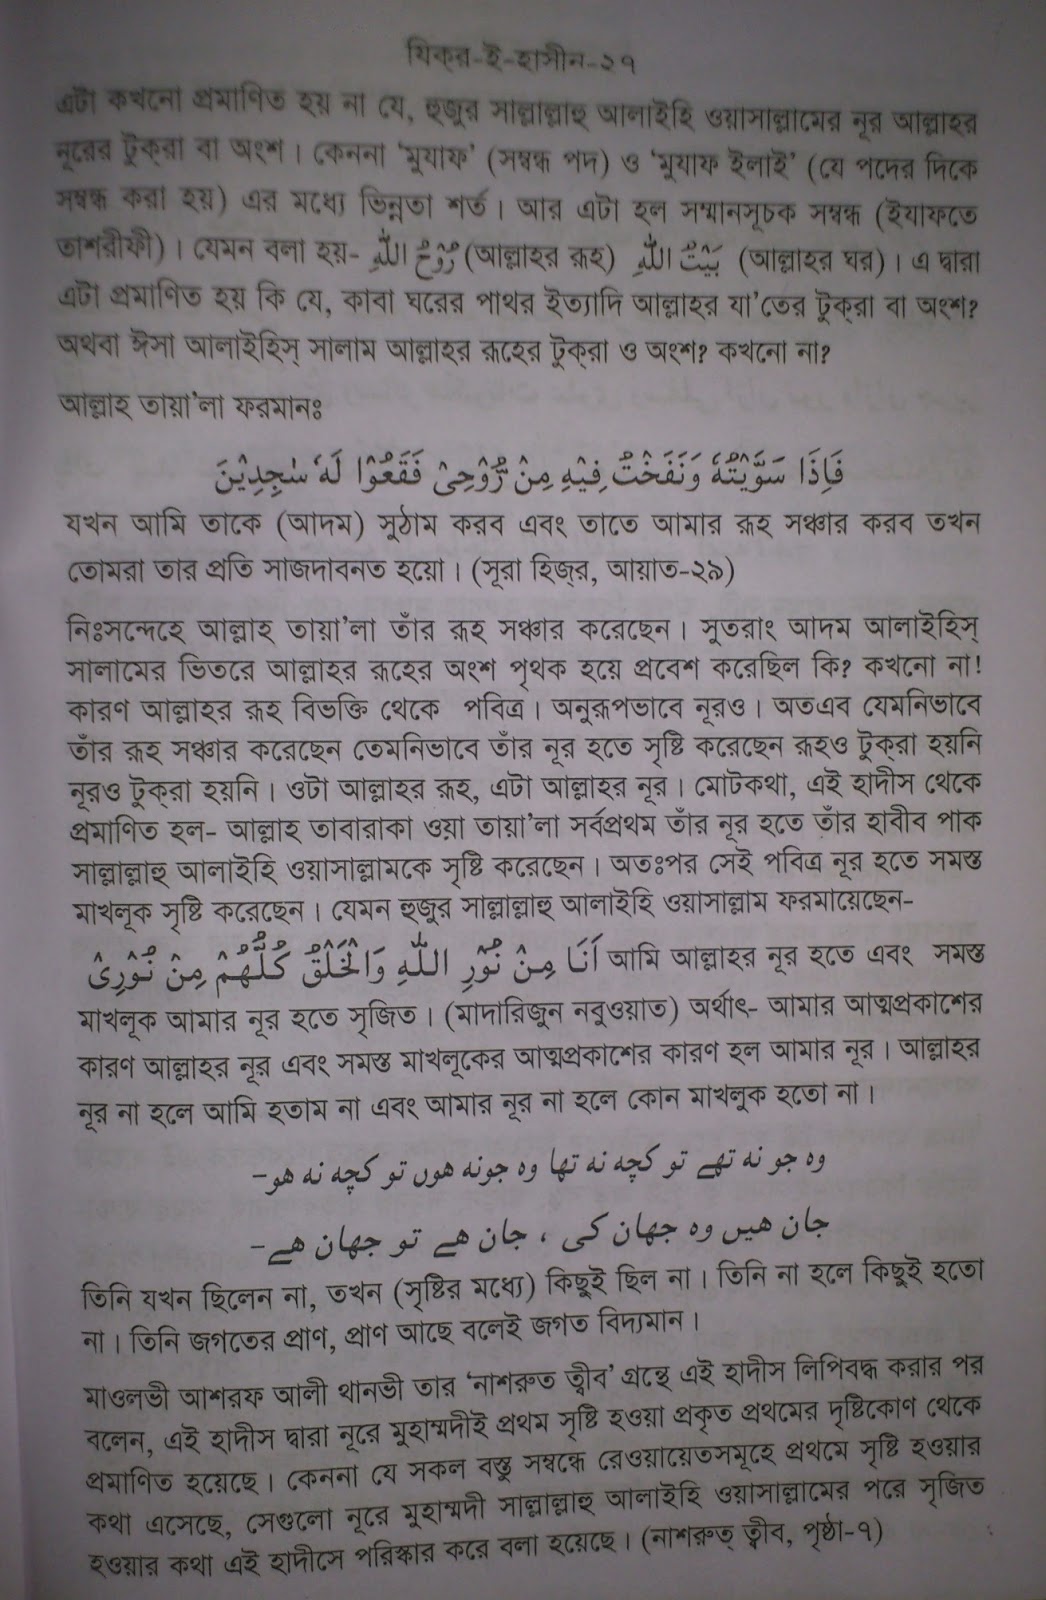 যিক্‌র-ই-হাসীন-২৭
এটা কখনো প্রমাণিত হয় না যে, হুজুর সাল্লাল্লাহু আলাইহি ওয়াসাল্লামের নূর আল্লাহর
নূরের টুক্‌রা বা অংশ। কেননা ‘মুযাফ’ (সম্বন্ধ পদ) ও ‘মুযাফ ইলাই’ (যে পদের দিকে
সম্বন্ধ করা হয়) এর মধ্যে ভিন্নতা শর্ত। আর এটা হল সম্মানসূচক সম্বন্ধ (ইযাফতে
তাশরীফী)। যেমন বলা হয়- رُوْحُ اللهِ (আল্লাহর রূহ) بَيْتُ اللهِ (আল্লাহর ঘর)। এ দ্বারা
এটা প্রমাণিত হয় কি যে, কাবা ঘরের পাথর ইত্যাদি আল্লাহর যা’তের টুক্‌রা বা অংশ?
অথবা ঈসা আলাইহিস্ সালাম আল্লাহর রূহের টুক্‌রা ও অংশ? কখনো না?
আল্লাহ তায়া’লা ফরমানঃ
فَاِذَا سَوَّيْتُهٗ وَنَفَخْتُ فِيْهِ مِنْ رُّوْحِىْ فَقَعُوْا لَهٗ سٰجِدِيْنَ
যখন আমি তাকে (আদম) সুঠাম করব এবং তাতে আমার রূহ সঞ্চার করব তখন
তোমরা তার প্রতি সাজদাবনত হয়ো। (সূরা হিজ্‌র, আয়াত-২৯)
নিঃসন্দেহে আল্লাহ তায়া’লা তাঁর রূহ সঞ্চার করেছেন। সুতরাং আদম আলাইহিস্
সালামের ভিতরে আল্লাহর রূহের অংশ পৃথক হয়ে প্রবেশ করেছিল কি? কখনো না!
কারণ আল্লাহর রূহ বিভক্তি থেকে পবিত্র। অনুরূপভাবে নূরও। অতএব যেমনিভাবে
তাঁর রূহ সঞ্চার করেছেন তেমনিভাবে তাঁর নূর হতে সৃষ্টি করেছেন রূহও টুক্‌রা হয়নি
নূরও টুক্‌রা হয়নি। ওটা আল্লাহর রূহ, এটা আল্লাহর নূর। মোটকথা, এই হাদীস থেকে
প্রমাণিত হল- আল্লাহ তাবারাকা ওয়া তায়া’লা সর্বপ্রথম তাঁর নূর হতে তাঁর হাবীব পাক
সাল্লাল্লাহু আলাইহি ওয়াসাল্লামকে সৃষ্টি করেছেন। অতঃপর সেই পবিত্র নূর হতে সমস্ত
মাখলূক সৃষ্টি করেছেন। যেমন হুজুর সাল্লাল্লাহু আলাইহি ওয়াসাল্লাম ফরমায়েছেন-
اَنَا مِنْ نُوْرِ اللهِ وَالْخَلْقُ كُلُّهُمْ مِنْ نُوْرِىْ আমি আল্লাহর নূর হতে এবং সমস্ত
মাখলূক আমার নূর হতে সৃজিত। (মাদারিজুন নবুওয়াত) অর্থাৎ- আমার আত্মপ্রকাশের
কারণ আল্লাহর নূর এবং সমস্ত মাখলূকের আত্মপ্রকাশের কারণ হল আমার নূর। আল্লাহর
নূর না হলে আমি হতাম না এবং আমার নূর না হলে কোন মাখলুক হতো না।
وہ جو نہ تھے تو کچھ نہ تھا وہ جونہ ھوں تو کچھ نہ ھو-
جان ھیں وہ جھان کی ، جان ھے تو جھان ھے-
তিনি যখন ছিলেন না, তখন (সৃষ্টির মধ্যে) কিছুই ছিল না। তিনি না হলে কিছুই হতো
না। তিনি জগতের প্রাণ, প্রাণ আছে বলেই জগত বিদ্যমান।
মাওলভী আশরফ আলী থানভী তার ‘নাশরুত ত্বীব’ গ্রন্থে এই হাদীস লিপিবদ্ধ করার পর
বলেন, এই হাদীস দ্বারা নূরে মুহাম্মদীই প্রথম সৃষ্টি হওয়া প্রকৃত প্রথমের দৃষ্টিকোণ থেকে
প্রমাণিত হয়েছে। কেননা যে সকল বস্তু সম্বন্ধে রেওয়ায়েতসমূহে প্রথমে সৃষ্টি হওয়ার
কথা এসেছে, সেগুলো নূরে মুহাম্মদী সাল্লাল্লাহু আলাইহি ওয়াসাল্লামের পরে সৃজিত
হওয়ার কথা এই হাদীসে পরিস্কার করে বলা হয়েছে। (নাশরুত্ ত্বীব, পৃষ্ঠা-৭)